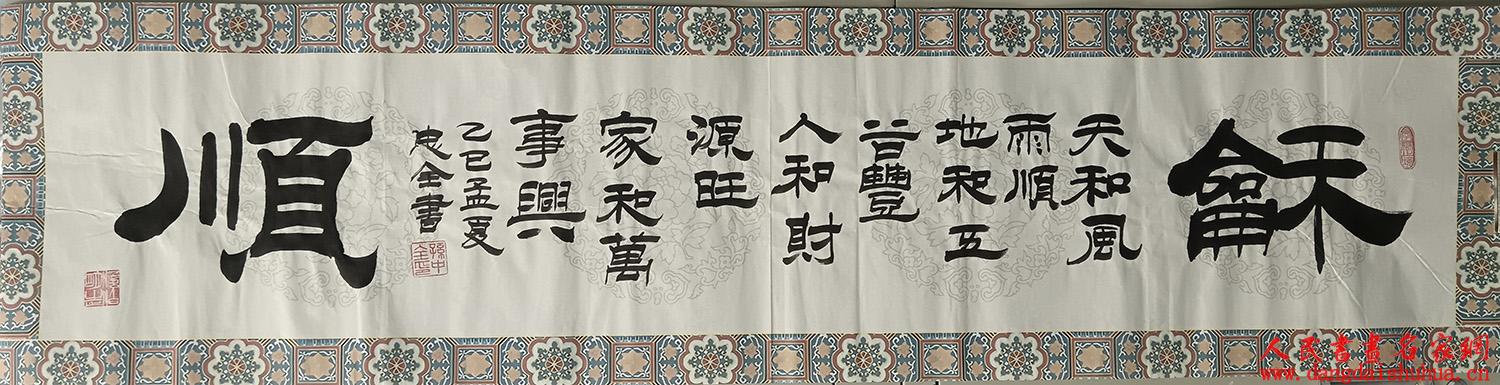 龢
天和風
雨順
地和五
谷豐
人和財
源旺
家和萬
事興
乙巳孟夏
忠全書
順
人民書畫名家網
www.dangdaishuhua.cn